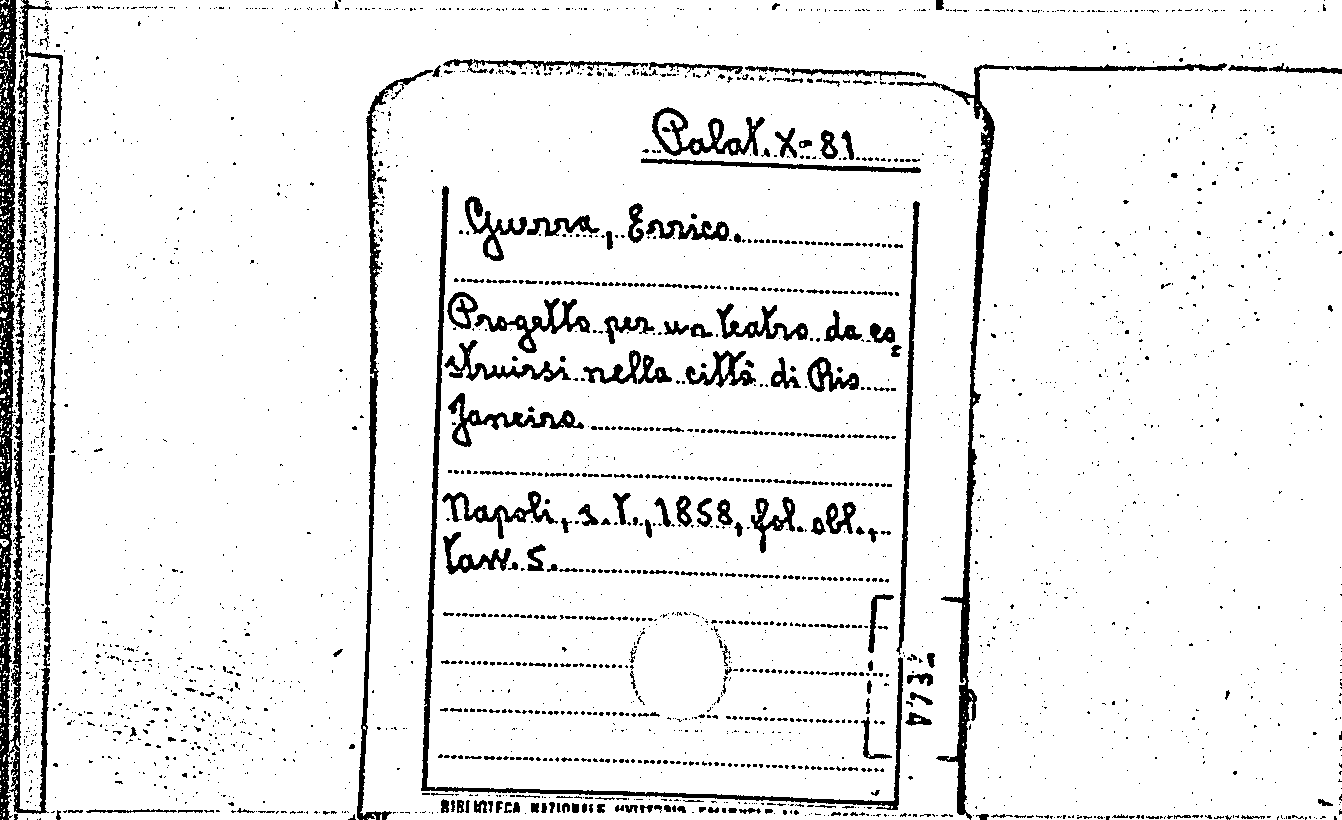 Palat. X-81
Guerra, Errico.
Progetto per un teatro da co=
struirsi nella città di Rio
Janeiro.
Napoli, s.t., 1858, fol. obl.,
tavv. 5.
BIBLIOTECA NAZIONALE